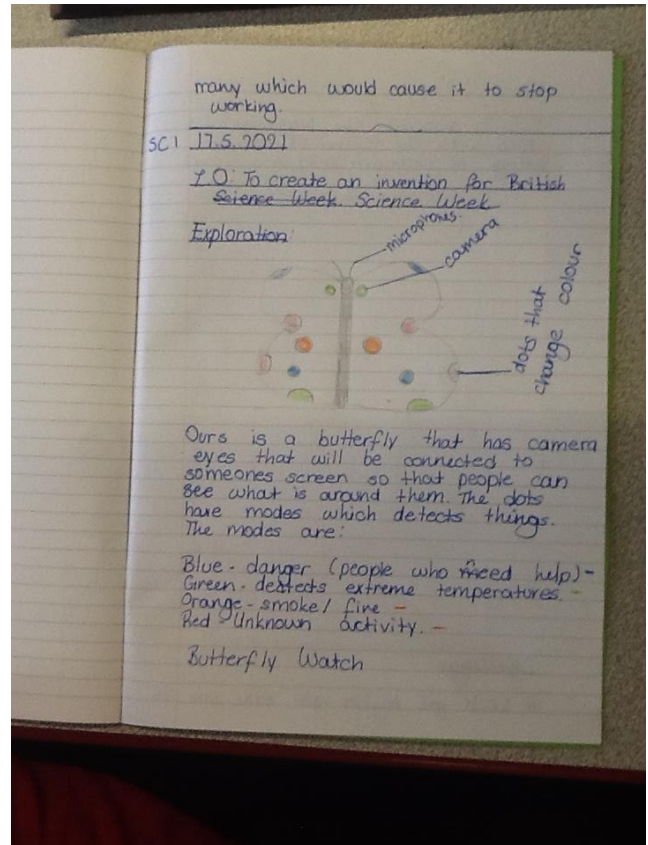 many which would cause it to stop
working.
SC1 17.5.2021
L.O: To create an invention for British
Science Week. Science Week
Exploration:
microphones.
camera
dots that
change colour
Ours is a butterfly that has camera
eyes that will be connected to
someones screen so that people can
see what is around them. The dots
have modes which detects things.
The modes are:
Blue - danger (people who need help) -
Green - detects extreme temperatures. -
Orange - smoke / fire -
Red - Unknown activity. -
Butterfly Watch